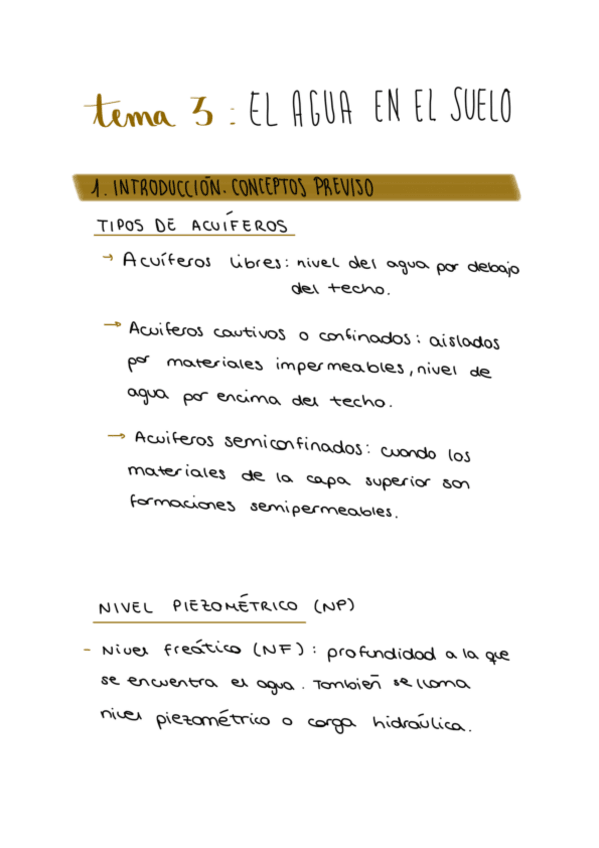 tema 3: EL AGUA EN EL SUELO
1. INTRODUCCIÓN. CONCEPTOS PREVISO
TIPOS DE ACUÍFEROS
→ Acuíferos libres: nivel del agua por debajo
del techo.
→ Acuiferos cautivos o confinados: aislados
por materiales impermeables, nivel de
agua por encima del techo.
→ Acuiferos semiconfinados: cuando los
materiales de la capa superior son
formaciones semipermeables.
NIVEL PIEZOMÉTRICO (NP)
- Nivel freático (NF): profundidad a la que
se encuentra el agua. También se llama
nivel piezométrico o carga hidraúlica.